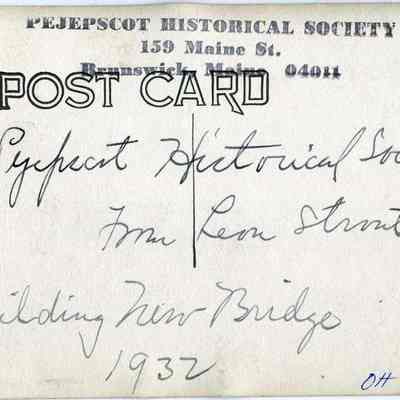 PEJEPSCOT HISTORICAL SOCIETY
159 Maine St.
Brunswick, Maine 04011
POST CARD
Pejepscot Historical Soc
From Leon Strout
ilding New Bridge
1932
OH